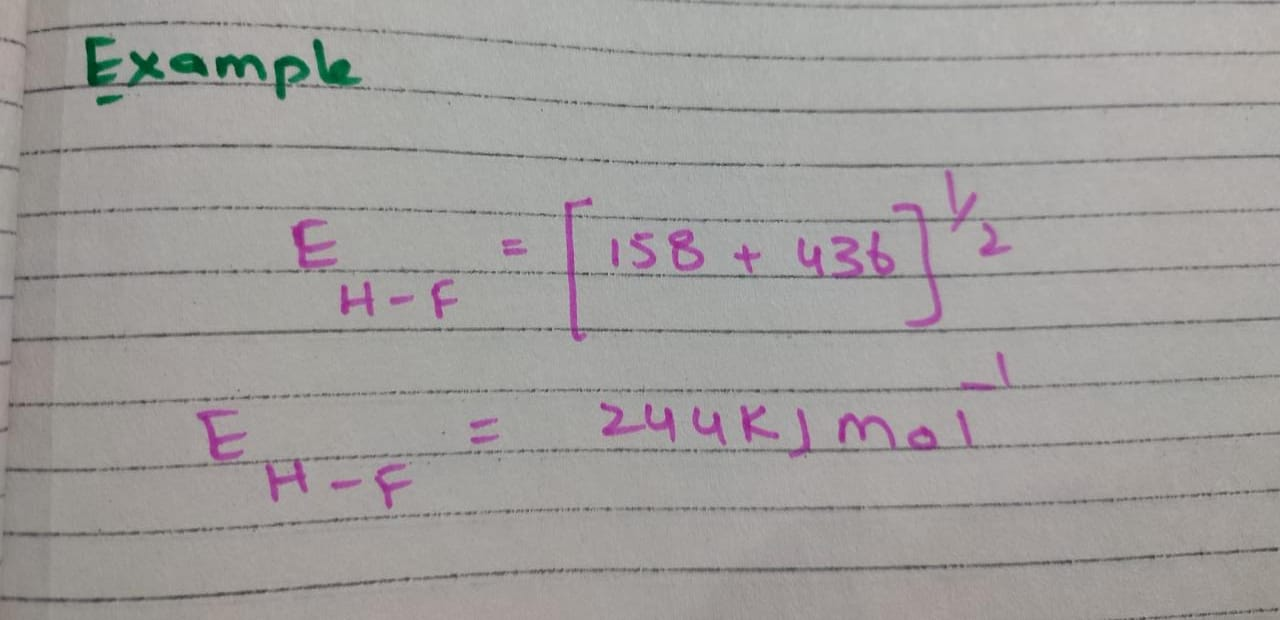 Example
E H-F = [158 + 436]^1/2
E H-F = 244KJ mol^-1